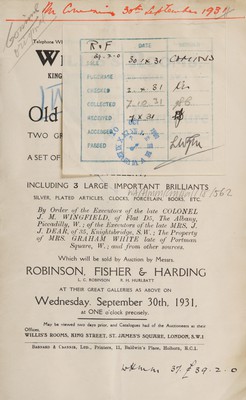 30th September 1931
Telephone
Wi
KING
R & F
DATE
SALE 30 9 31
PURCHASE
CHECKED
COLLECTED 7.10.31
RECEIVED 7 x 31
ACCESSED
PASSED
Old
TWO GR
A SET OF
INCLUDING 3 LARGE IMPORTANT BRILLIANTS
SILVER, PLATED ARTICLES, CLOCKS, PORCELAIN, BOOKS, ETC.
By Order of the Executors of the late COLONEL
J. M. WINGFIELD, of Flat D5, The Albany,
Piccadilly, W.; of the Executors of the late MRS. J.
J. DEAR, of 35, Knightsbridge, S.W.; The Property
of MRS. GRAHAM WHITE late of Portman
Square, W.; and from other sources.
Which will be Sold by Auction by Messrs.
ROBINSON, FISHER & HARDING
L. G. ROBINSON R. H. HURLBATT
AT THEIR GREAT GALLERIES AS ABOVE ON
Wednesday, September 30th, 1931,
at ONE o'clock precisely.
May be viewed two days prior, and Catalogues had of the Auctioneers at their Offices:
WILLIS'S ROOMS, KING STREET, ST. JAMES'S SQUARE, LONDON, S.W.1
37 £39-2-0